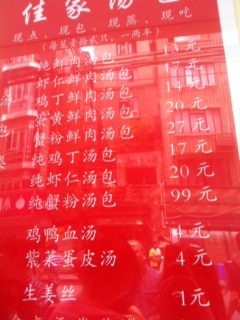 佳家汤
现点、现包、现蒸、现吃
(每笼拾贰只，一两半)
纯鲜肉汤包 元
虾仁鲜肉汤包 17元
鸡丁鲜肉汤包 14元
黄鲜肉汤包 20元
蟹粉鲜肉汤包 27元
纯鸡丁汤包 17元
纯虾仁汤包 20元
纯蟹粉汤包 99元
鸡鸭血汤 4元
紫菜蛋皮汤 4元
生姜丝 1元